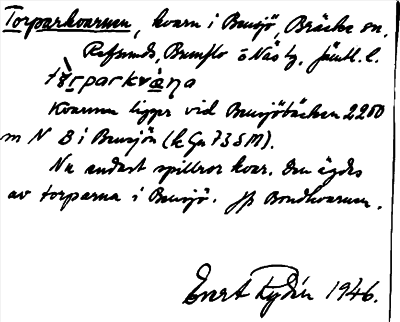 Torparkvarnen, kvarn i Bensjö, Bräcke sn,
Refsunds, Brunflo o Näs tg, Jämtl. l.
tòrparkvàṇa
Kvarnen ligger vid Bensjöbäcken 2250
m N B i Bensjön (k Ga 73 S M).
Nu endast spillror kvar. Den ägdes
av torparna i Bensjö. Jfr Bondkvarnen.
Evert Rydén 1946.